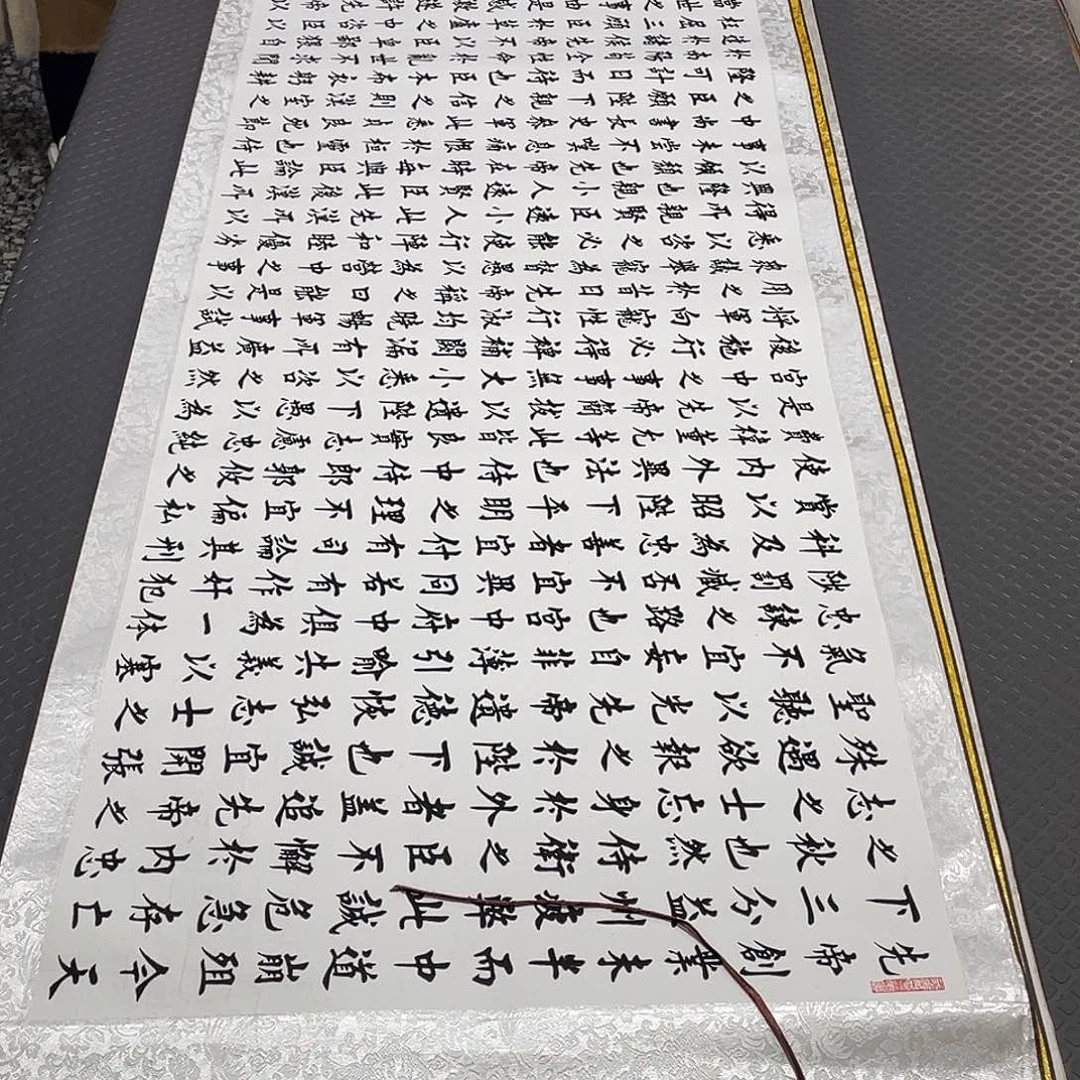 先帝創業未半而中道崩殂今天
下三分益州疲弊此誠危急存亡
之秋也然侍衛之臣不懈於內忠
志之士忘身於外者蓋追先帝之
殊遇欲報之於陛下也誠宜開張
聖聽以光先帝遺德恢弘志士之
氣不宜妄自菲薄引喻失義以塞
忠諫之路也宮中府中俱為一体
陟罰臧否不宜異同若有作奸犯
科及為忠善者宜付有司論其刑
賞以昭陛下平明之理不宜偏私
使內外異法也侍中侍郎郭攸之
費禕董允等此皆良實志慮忠純
是以先帝簡拔以遺陛下愚以為
宮中之事事無大小悉以咨之然
後施行必得裨補闕漏有所廣益
將軍向寵性行淑均曉暢軍事試
用之於昔日先帝稱之曰能是以
眾議舉寵為督愚以為營中之事
悉以咨之必能使行陣和睦優劣
得所親賢臣遠小人此先漢所以
興隆也親小人遠賢臣此後漢所
以傾頹也先帝在時每與臣論此
事未嘗不歎息痛恨於桓靈也侍
中尚書長史參軍此悉貞良死節
之臣願陛下親之信之則漢室之
隆可計日而待也臣本布衣躬耕
於南陽苟全性命於亂世不求聞